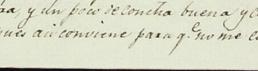 ra, y un poco de concha buena y
pues asi conviene para q.e no me